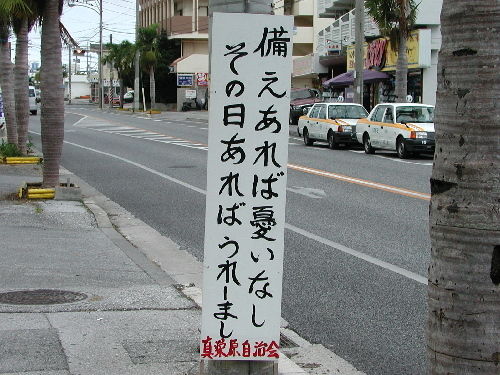 備えあれば憂いなし
その日あればうれーまし
真栄原自治会